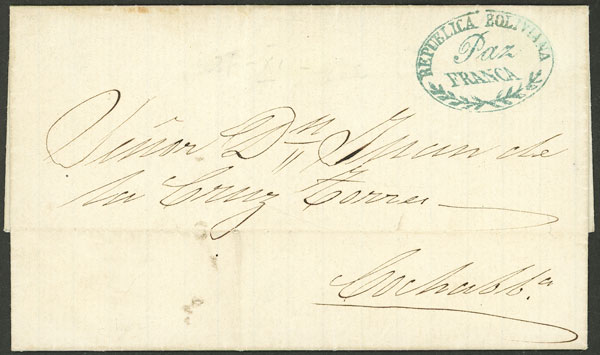 REPUBLICA BOLIVIANA
Paz
FRANCA
Señor Dn Juan de
la Cruz Torres
Cochabba.